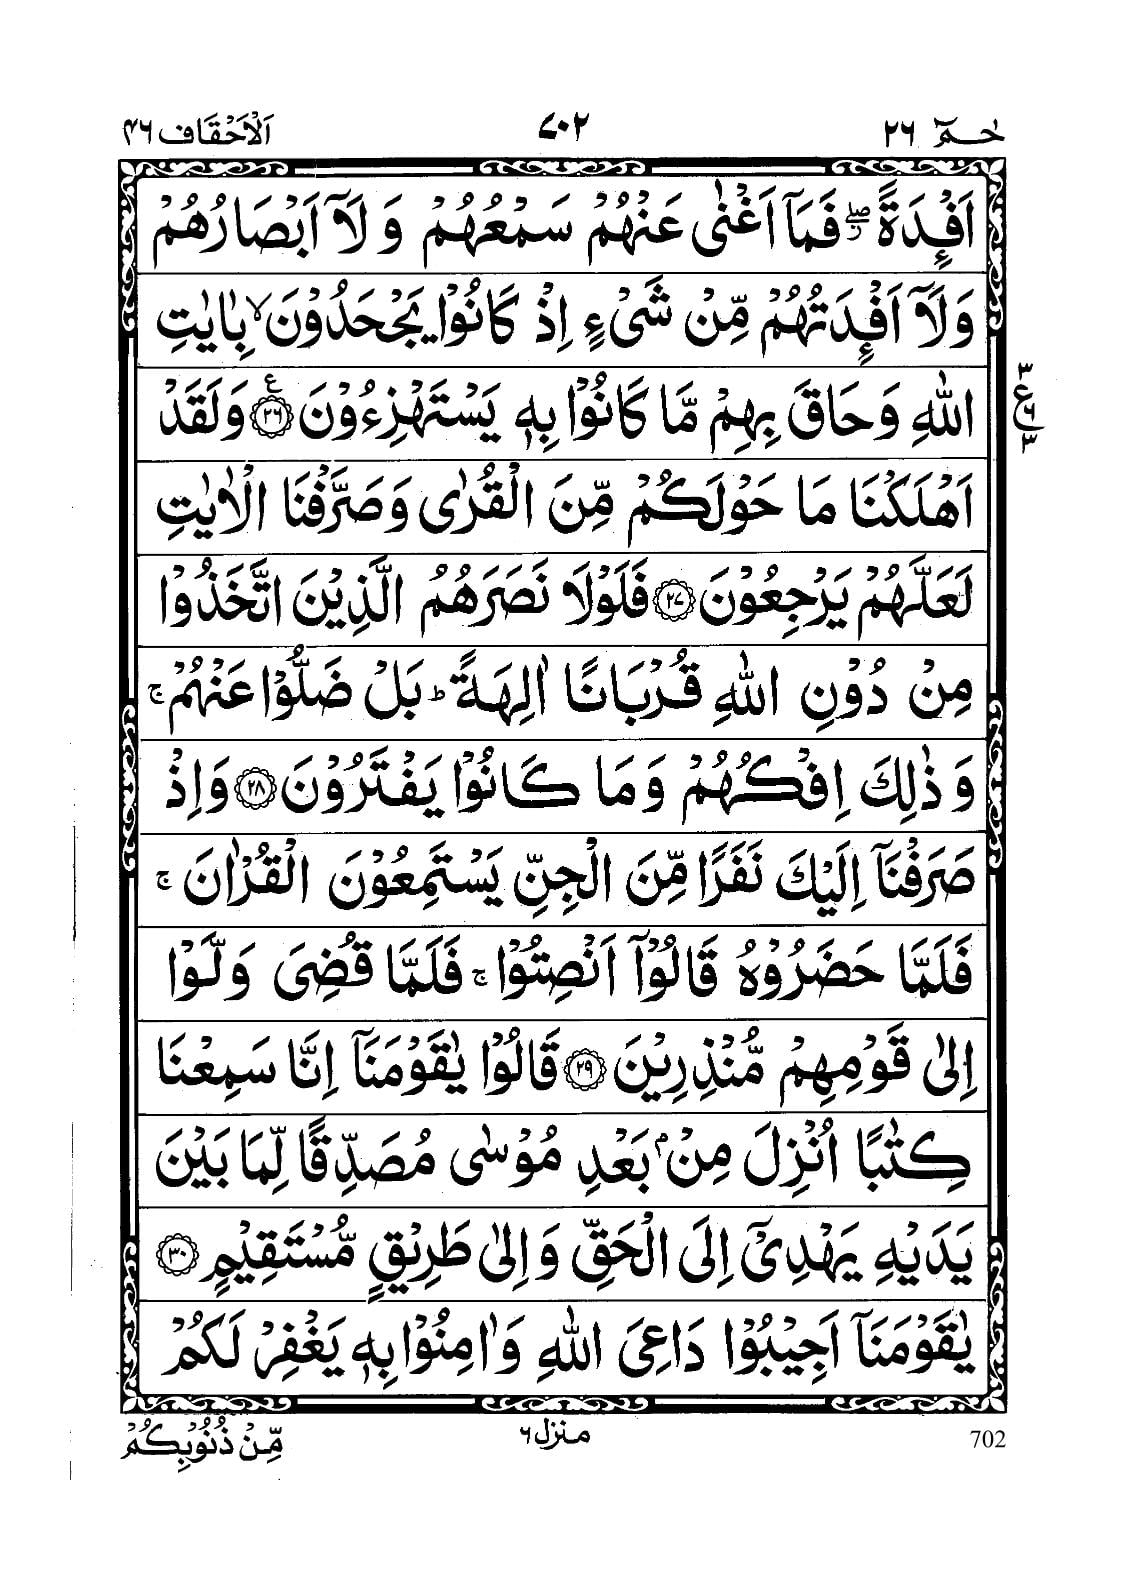 حٰـمٓ ٢٦
٧٠٢
اَلْاَحْقَاف ٤٦
اَفْـِٕدَةً ۖ فَمَاۤ اَغْنٰى عَنْهُمْ سَمْعُهُمْ وَ لَاۤ اَبْصَارُهُمْ
وَلَاۤ اَفْـِٕدَتُهُمْ مِّنْ شَیْءٍ اِذْ كَانُوْا یَجْحَدُوْنَ ۙ بِاٰیٰتِ
اللّٰهِ وَحَاقَ بِهِمْ مَّا كَانُوْا بِهٖ یَسْتَهْزِءُوْنَ ﴿٢٦﴾ ع وَلَقَدْ
٣
ع
٦
٣
اَهْلَكْنَا مَا حَوْلَكُمْ مِّنَ الْقُرٰى وَصَرَّفْنَا الْاٰیٰتِ
لَعَلَّهُمْ یَرْجِعُوْنَ ﴿٢٧﴾ فَلَوْلَا نَصَرَهُمُ الَّذِیْنَ اتَّخَذُوْا
مِنْ دُوْنِ اللّٰهِ قُرْبَانًا اٰلِهَةً ؕ بَلْ ضَلُّوْا عَنْهُمْ ۚ
وَذٰلِكَ اِفْكُهُمْ وَمَا كَانُوْا یَفْتَرُوْنَ ﴿٢٨﴾ وَاِذْ
صَرَفْنَاۤ اِلَیْكَ نَفَرًا مِّنَ الْجِنِّ یَسْتَمِعُوْنَ الْقُرْاٰنَ ۚ
فَلَمَّا حَضَرُوْهُ قَالُوْۤا اَنْصِتُوْا ۚ فَلَمَّا قُضِیَ وَلَّوْا
اِلٰى قَوْمِهِمْ مُّنْذِرِیْنَ ﴿٢٩﴾ قَالُوْا یٰقَوْمَنَاۤ اِنَّا سَمِعْنَا
كِتٰبًا اُنْزِلَ مِنْۢ بَعْدِ مُوْسٰى مُصَدِّقًا لِّمَا بَیْنَ
یَدَیْهِ یَهْدِیْۤ اِلَى الْحَقِّ وَاِلٰى طَرِیْقٍ مُّسْتَقِیْمٍ ﴿٣٠﴾
یٰقَوْمَنَاۤ اَجِیْبُوْا دَاعِیَ اللّٰهِ وَاٰمِنُوْا بِهٖ یَغْفِرْ لَكُمْ
702
منزل ٦
مِّنْ ذُنُوْبِكُمْ